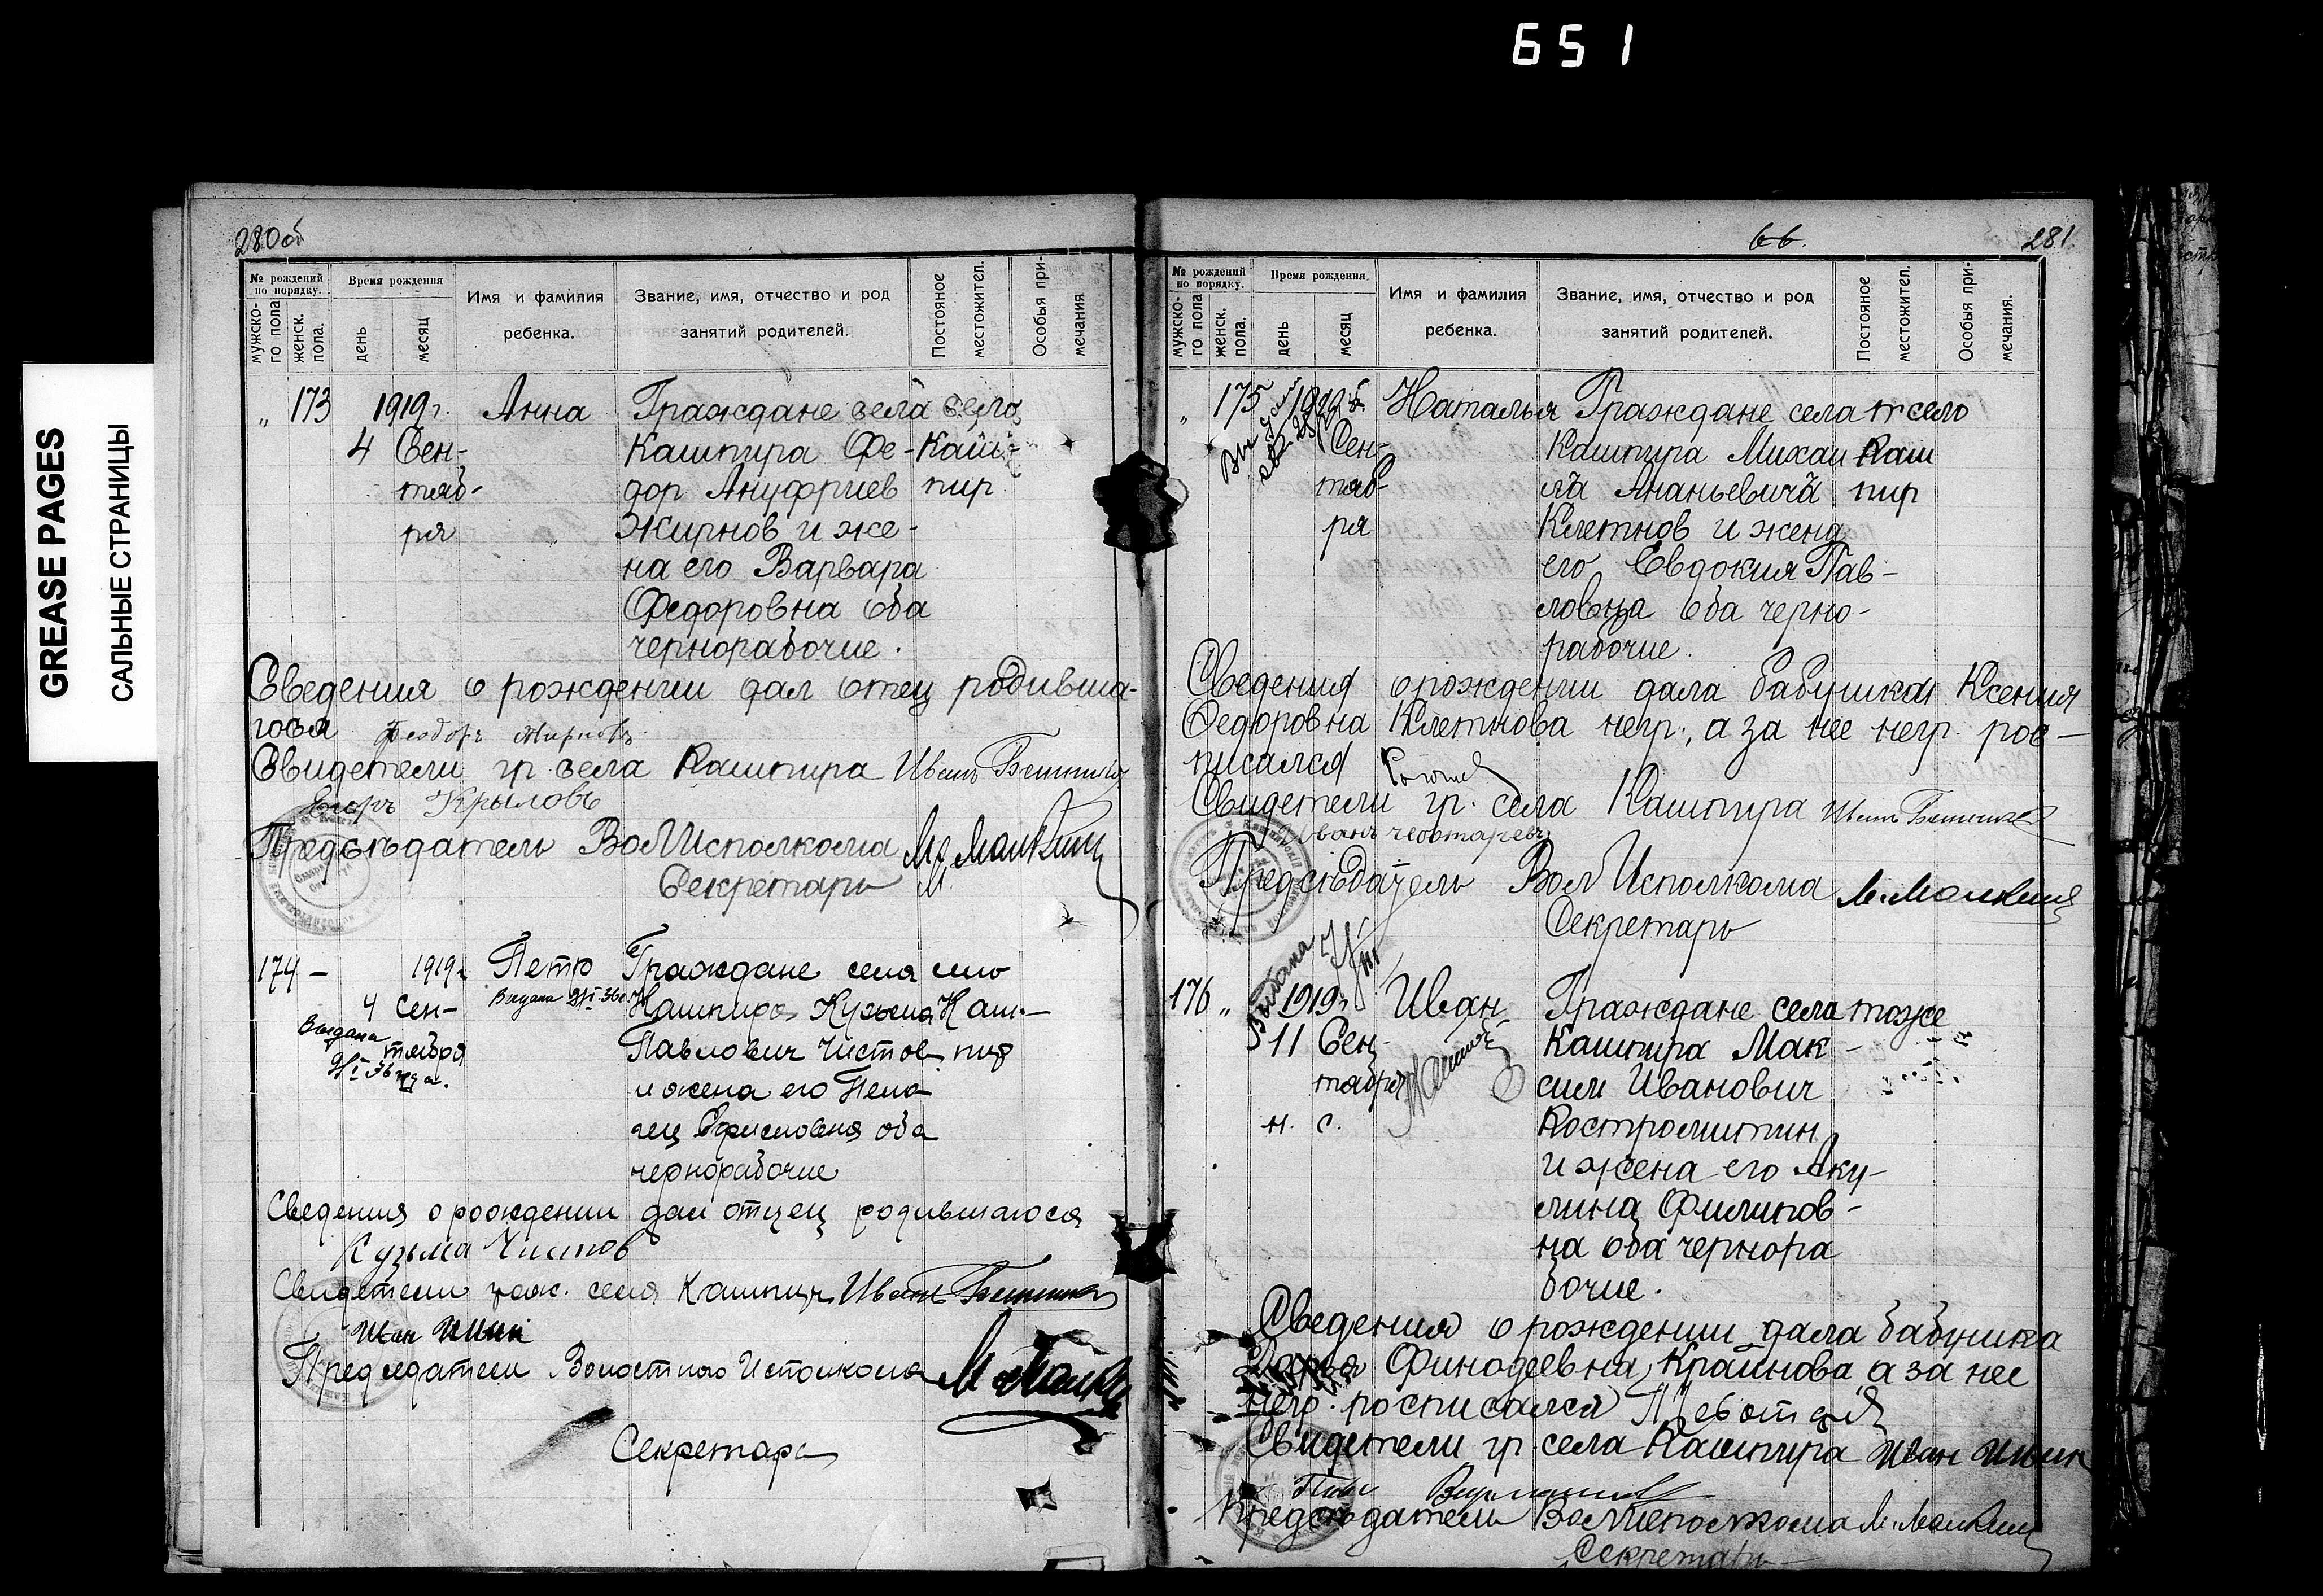 651
GREASE PAGES
САЛЬНЫЕ СТРАНИЦЫ
280об
№ рождений по порядку.
мужско-го пола
женск. пола.
Время рождения
день
месяц
Имя и фамилия ребенка.
Звание, имя, отчество и род занятий родителей.
Постояное местожител.
Особыя при-мечания
„ 173 1919 г. Анна Граждане села село
4 Сен- Кашпира Фе- Каш-
тяб- дор Ануфриев пир
ря Жирнов и же-
на его Варвара
Федоровна оба
чернорабочие.
Сведения о рождении дал отец родивша-
гося Феодоръ Жирновъ
Свидетели гр. села Кашпира Иванъ
Егоръ Крыловъ
Предсѣдатель ВолИсполкома М. Малкин
Секретарь
174 – 1919 г. Петр Граждане села село
Выдана 9/I-36г. Кашпира Кузьма Каш-
4 Сен- Павлович Чистов пир
Выдана тября и жена его Пела-
9/I 36 года. гея оба
чернорабочие
Сведения о рождении дал отец родившагося
Кузьма Чистов
Свидетели граж. села Кашпир Иванъ
Иван
Председатель Волостного Исполкома М. Малкин
Секретарь
66. 281
№ рождений по порядку.
мужско-го пола
женск. пола.
Время рождения.
день
месяц
Имя и фамилия ребенка.
Звание, имя, отчество и род занятий родителей.
Постояное местожител.
Особыя при-мечания.
„ 175 1919 г. Наталья Граждане села село
Сен- Кашпира Михаи Каш
тяб- ла Ананьевича пир
ря Клетнов и жена
его Евдокия Пав-
ловна оба черно-
рабочие.
Сведения о рождении дала бабушка Ксения
Федоровна Клетнова негр., а за нее негр. рос-
писался
Свидетели гр. села Кашпира Иванъ
Иванъ
Предсѣдатель Вол Исполкома М. Малкин
Секретарь
Выдана
176 „ 1919 г. Иван Граждане села тоже
11 Сен- Кашпира Мак-
тября сим Иванович
н. с. Костромитин
и жена его Аку-
лина Филипов-
на оба чернора
бочие.
Сведения о рождении дала бабушка
Дарья Финодеевна Крайнова а за нее
негр. росписался
Свидетели гр. села Кашпира Иван
Предсѣдатель ВолИсполкома М. Малкин
Секретарь